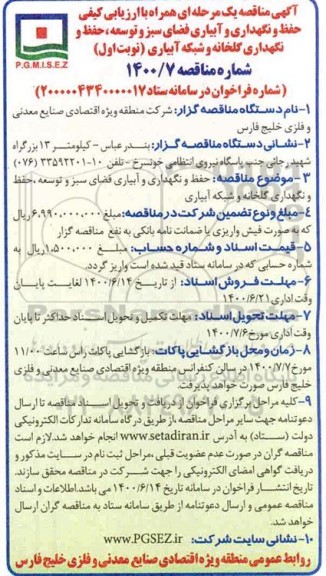 آگهی مناقصه یک مرحله ای همراه با ارزیابی کیفی
حفظ و نگهداری و آبیاری فضای سبز و توسعه ، حفظ و
نگهداری گلخانه و شبکه آبیاری (نوبت اول)
P.G.M.I.S.E.Z
شماره مناقصه ۱۴۰۰/۷
(شماره فراخوان در سامانه ستاد ۲۰۰۰۰۰۴۳۴۰۰۰۰۰۱۷)
۱- نام دستگاه مناقصه گزار: شرکت منطقه ویژه اقتصادی صنایع معدنی
و فلزی خلیج فارس
۲- نشانی دستگاه مناقصه گزار: بندرعباس - کیلومتر ۱۳ بزرگراه
شهید رجائی جنب پاسگاه نیروی انتظامی خونسرخ - تلفن ۱۰-۳۳۵۹۲۲۰۱ (۰۷۶)
۳- موضوع مناقصه: حفظ و نگهداری و آبیاری فضای سبز و توسعه ، حفظ
و نگهداری گلخانه و شبکه آبیاری
۴- مبلغ و نوع تضمین شرکت در مناقصه: مبلغ ۶.۹۹۰.۰۰۰.۰۰۰ ریال
که به صورت فیش واریزی یا ضمانت نامه بانکی به نفع مناقصه گزار
۵- قیمت اسناد و شماره حساب: مبلغ ۱.۵۰۰.۰۰۰ ریال به
شماره حسابی که در سامانه ستاد قید شده است واریز گردد.
۶- مهلت فروش اسناد: از تاریخ ۱۴۰۰/۶/۱۴ لغایت پایان
وقت اداری ۱۴۰۰/۶/۲۱
۷- مهلت تحویل اسناد: مهلت تکمیل و تحویل اسناد حداکثر تا پایان
وقت اداری مورخ ۱۴۰۰/۷/۶
۸- زمان و محل بازگشایی پاکات: بازگشایی پاکات راس ساعت ۱۱/۰۰
مورخ ۱۴۰۰/۷/۷ در سالن کنفرانس منطقه ویژه اقتصادی صنایع معدنی و فلزی
خلیج فارس صورت خواهد پذیرفت.
۹- کلیه مراحل برگزاری فراخوان از دریافت و تحویل اسناد مناقصه تا ارسال
دعوتنامه جهت سایر مراحل مناقصه ،از طریق درگاه سامانه تدارکات الکترونیکی
دولت (ستاد) به آدرس www.setadiran.ir انجام خواهد شد. لازم است
مناقصه گران در صورت عدم عضویت قبلی ،مراحل ثبت نام در سایت مذکور و
دریافت گواهی امضای الکترونیکی را جهت شرکت در مناقصه محقق سازند.
تاریخ انتشار فراخوان در سامانه تاریخ ۱۴۰۰/۶/۱۴ می باشد. اطلاعات و اسناد
مناقصه عمومی و ارسال دعوتنامه از طریق سامانه ستاد به مناقصه گران ارسال
خواهد شد.
۱۰- نشانی سایت شرکت: www.PGSEZ.ir
روابط عمومی منطقه ویژه اقتصادی صنایع معدنی و فلزی خلیج فارس